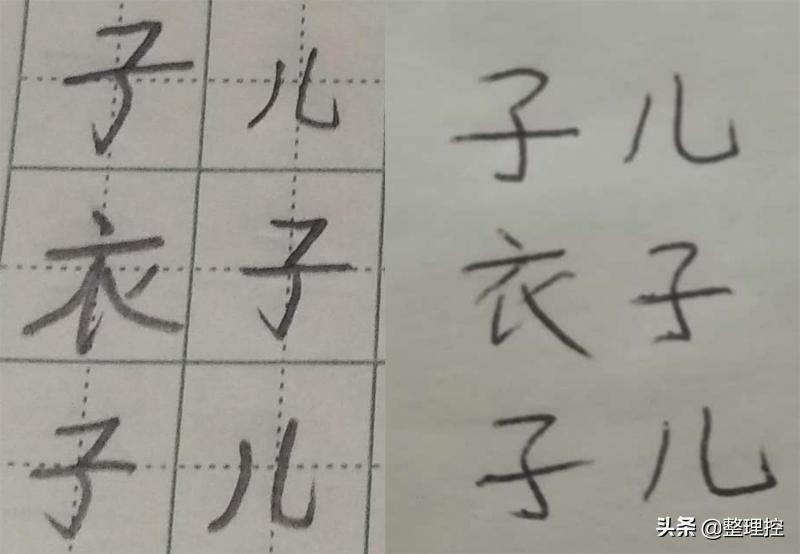 子儿 子儿
衣子 衣子
子儿 子儿
头条 @整理控